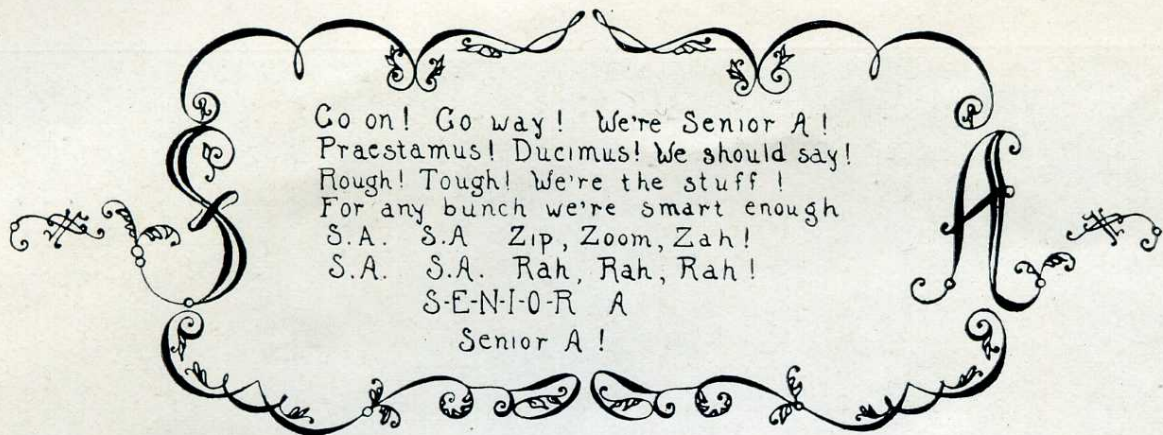 S A
Go on! Go way! We're Senior A!
Praestamus! Ducimus! We should say!
Rough! Tough! We're the stuff!
For any bunch we're smart enough
S.A. S.A Zip, Zoom, Zah!
S.A. S.A. Rah, Rah, Rah!
S-E-N-I-O-R A
Senior A!